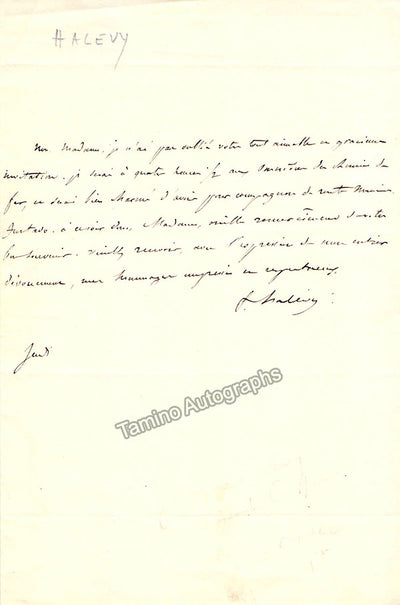 HALEVY
Non, Madame, je n'ai pas oublié votre tout aimable et gracieuse
invitation. je serai à quatre heures ½ au du chemin de
fer, et serai bien charmé d'avoir pour compagnon de route Monsieur
Furtado. à ce soir donc, Madame, mille remerciements de votre
bon souvenir. veuillez recevoir, avec l'expression de mon entier
dévouement, mes hommages empressés et respectueux.
F. Halévy
Jeudi
Tamino Autographs